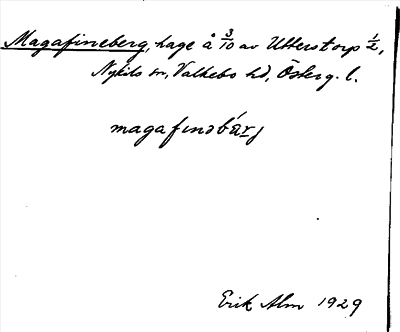 Magafineberg, hage å 3/10 av Utterstorp 1/2,
Nykils sn, Valkebo hd, Österg. l.
magafinsbärj
Erik Alm 1929